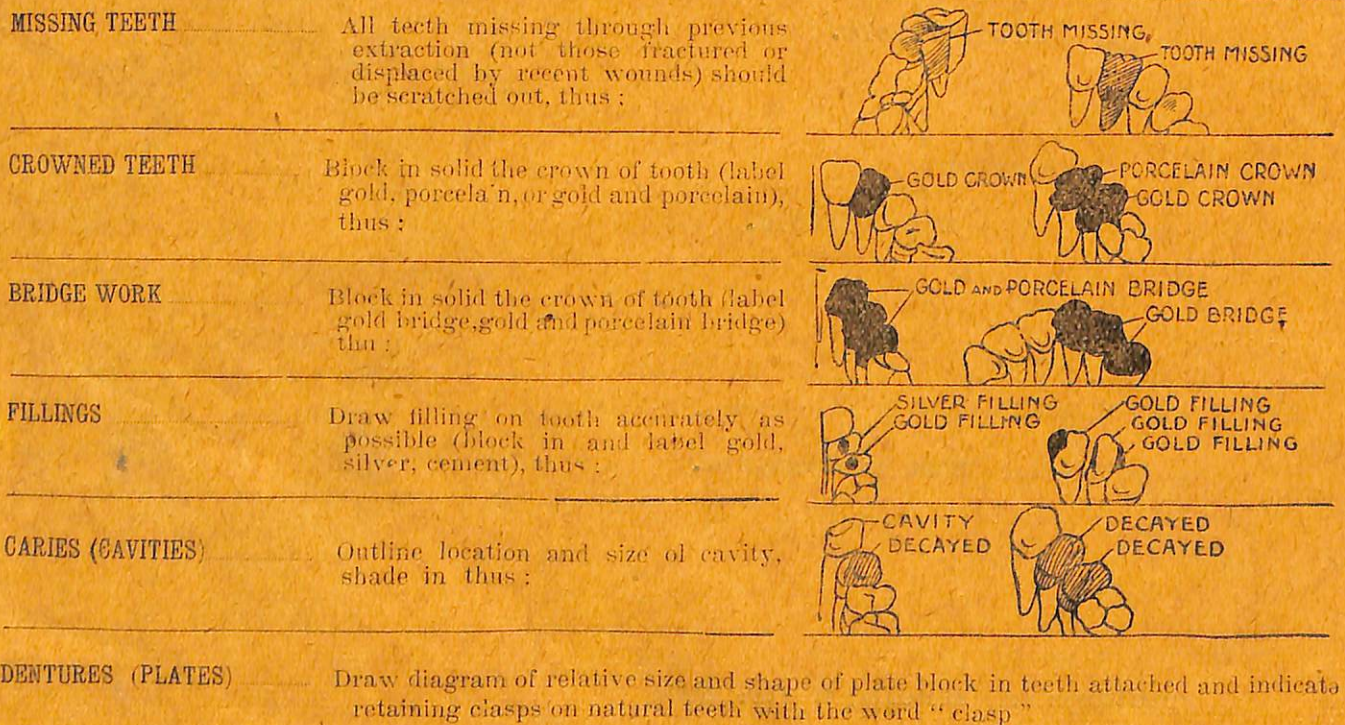 MISSING TEETH All teeth missing through previous
extraction (not those fractured or
displaced by recent wounds) should
be scratched out, thus :
TOOTH MISSING
TOOTH MISSING
CROWNED TEETH Block in solid the crown of tooth (label
gold, porcela'n, or gold and porcelain),
thus :
GOLD CROWN
PORCELAIN CROWN
GOLD CROWN
BRIDGE WORK Block in solid the crown of tooth (label
gold bridge, gold and porcelain bridge)
thu :
GOLD AND PORCELAIN BRIDGE
GOLD BRIDGE
FILLINGS Draw filling on tooth accurately as
possible (block in and label gold,
silver, cement), thus :
SILVER FILLING
GOLD FILLING
GOLD FILLING
GOLD FILLING
GOLD FILLING
CARIES (CAVITIES) Outline location and size of cavity,
shade in thus :
CAVITY
DECAYED
DECAYED
DECAYED
DENTURES (PLATES) Draw diagram of relative size and shape of plate block in teeth attached and indicate
retaining clasps on natural teeth with the word “ clasp ”